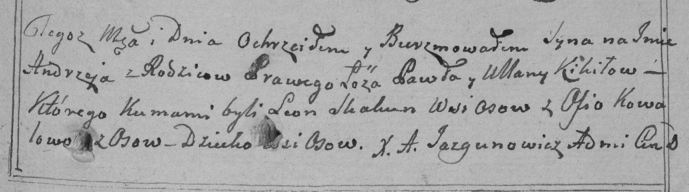 Tegoż Mca i Dnia Ochrzciłem y Bierzmowałem Syna na Imie
Andrzeja z Rodzicow Prawego Łoża Pawła y Ullany Kikiłow
Którego Kumami byli Leon Skakun Wsi Osow z Ofio Kowa
lowo z Osow – Dziecko Wsi Osow. X. A. Jazgunowicz Admi